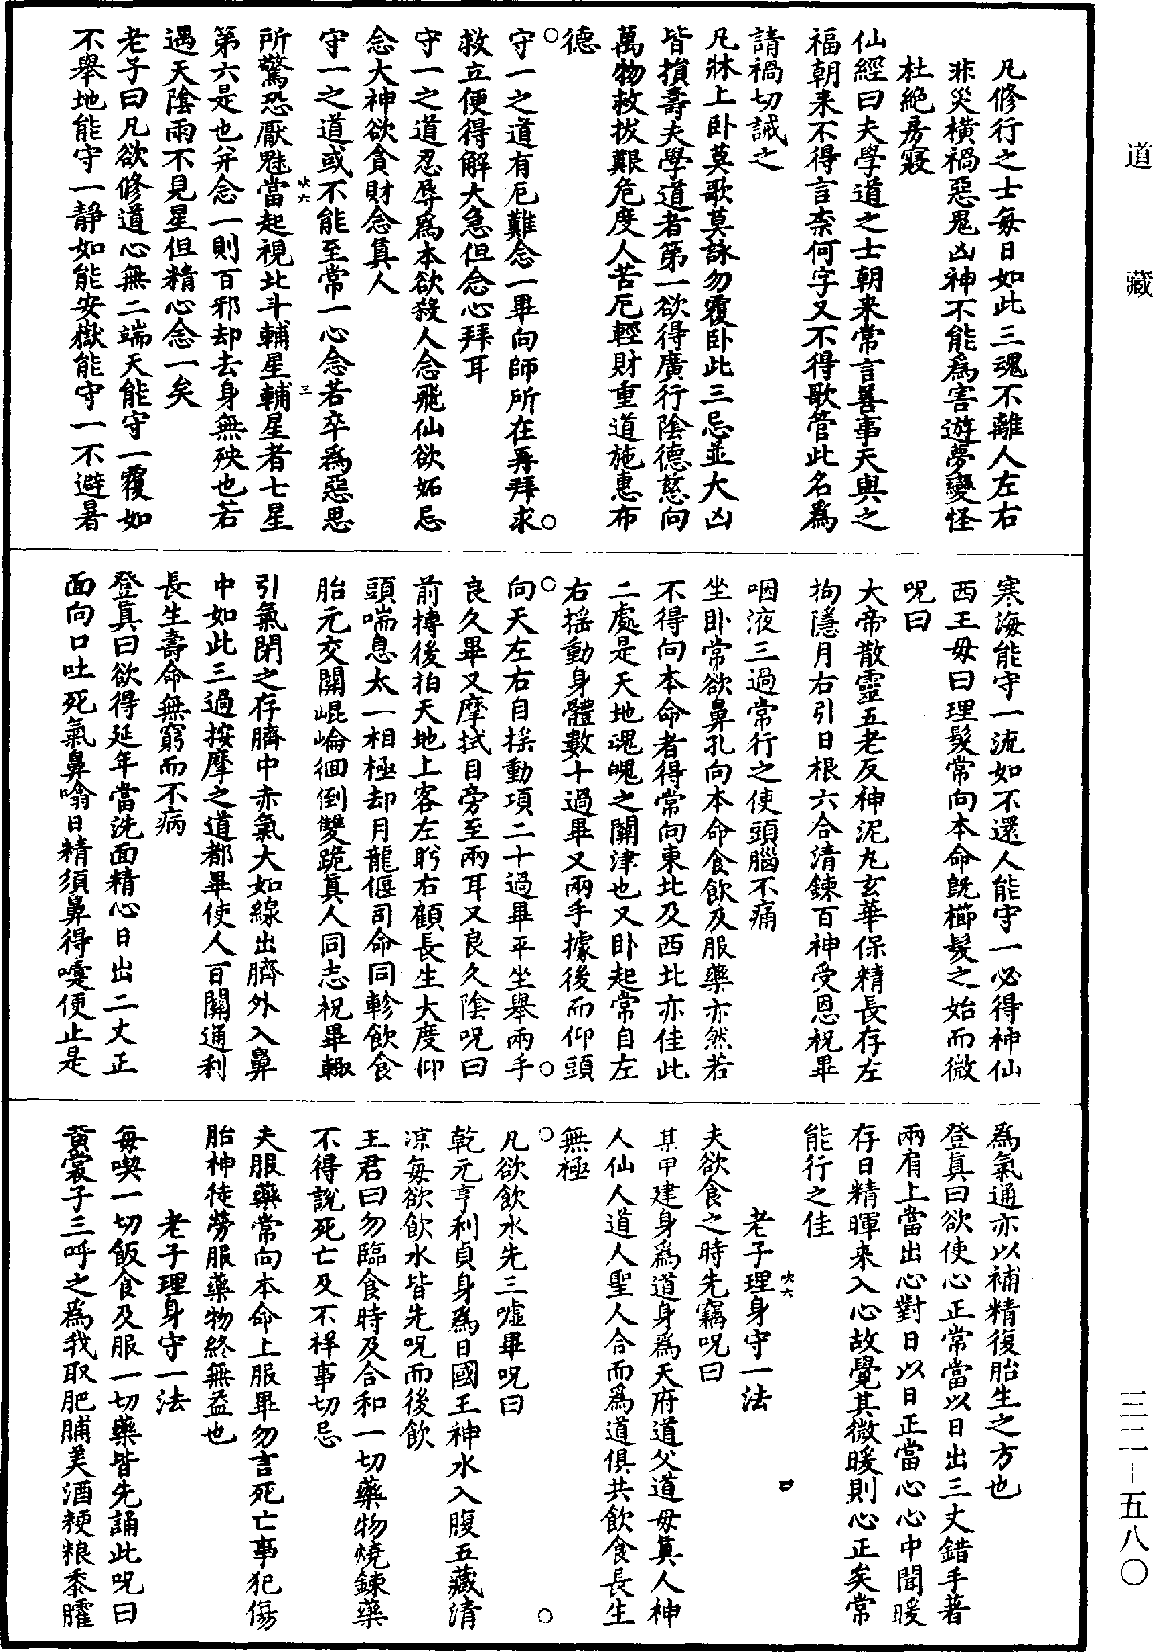 道藏
三二－五八〇
凡修行之士每日如此三魂不離人左右
非災橫禍惡鬼凶神不能為害遊夢變怪
杜絶房寢
仙經曰夫學道之士朝来常言善事天與之
福朝来不得言柰何字又不得歌管此名為
請禍切誡之
凡牀上卧莫歌莫詠勿覆卧此三忌並大凶
皆損壽夫學道者第一欲得廣行陰德慈向
萬物救拔艱危度人苦厄輕財重道施惠布
德
守一之道有厄難念一畢向師所在再拜求
救立便得解大急但念心拜耳
守一之道忍辱為本欲殺人念飛仙欲妬忌
念大神欲貪財念真人
守一之道或不能至常一心念若卒為惡思
所驚恐厭魅當起視北斗輔星輔星者七星
第六是也并念一則百邪却去身無殃也若
遇天陰雨不見星但精心念一矣
老子曰凡欲修道心無二端天能守一覆如
不舉地能守一靜如能安嶽能守一不避暑
寒海能守一流如不還人能守一必得神仙
西王母曰理髮常向本命旣櫛髮之始而微
呪曰
大帝散靈五老反神泥丸玄華保精長存左
拘隱月右引日根六合清鍊百神受恩祝畢
咽液三過常行之使頭腦不痛
坐卧常欲鼻孔向本命食飲及服藥亦然若
不得向本命者得常向東北及西北亦佳此
二處是天地魂魄之關津也又卧起常自左
右揺動身體數十過畢又兩手據後而仰頭
向天左右自挨動項二十過畢平坐舉兩手
良久畢又摩拭目旁至兩耳又良久陰呪曰
前摶後拍天地上客左盻右顧長生大度仰
頭喘息太一相極却月龍偃司命同軫飲食
胎元交關崐崘徊倒雙跪真人同志祝畢輙
引氣閉之存臍中赤氣大如線出臍外入鼻
中如此三過按摩之道都畢使人百關通利
長生壽命無窮而不病
登真曰欲得延年當洗面精心日出二丈正
面向口吐死氣鼻噏日精須鼻得嚏便止是
為氣通亦以補精復胎生之方也
登真曰欲使心正常當以日出三丈錯手著
兩肩上當出心對日以日正當心心中聞暖
存日精暉来入心故覺其微暖則心正矣常
能行之佳
老子理身守一法
夫欲食之時先竊呪曰
某甲建身為道身為天府道父道母真人神
人仙人道人聖人合而為道俱共飲食長生
無極
凡欲飲水先三噓畢呪曰
乾元亨利貞身為日國王神水入腹五藏清
凉每欲飲水皆先呪而後飲
王君曰勿臨食時及合和一切藥物燒鍊藥
不得說死亡及不祥事切忌
夫服藥常向本命上服畢勿言死亡事犯傷
胎神徒勞服藥物終無益也
老子理身守一法
每喫一切飯食及服一切藥皆先誦此呪曰
黄裳子三呼之為我取肥脯美酒粳粮黍臛